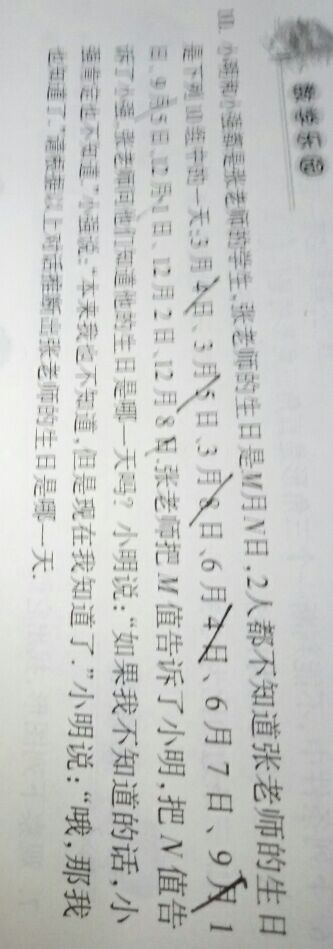 数学乐园
10. 小明和小强都是张老师的学生,张老师的生日是M月N日,2人都不知道张老师的生日
是下列10组中的一天:3月4日、3月5日、3月8日、6月4日、6月7日、9月1
日、9月5日、12月1日、12月2日、12月8日.张老师把M值告诉了小明,把N值告
诉了小强,张老师问他们知道他的生日是哪一天吗?小明说:“如果我不知道的话,小
强肯定也不知道.”小强说:“本来我也不知道,但是现在我知道了.”小明说:“哦,那我
也知道了.”请根据以上对话推断出张老师的生日是哪一天.